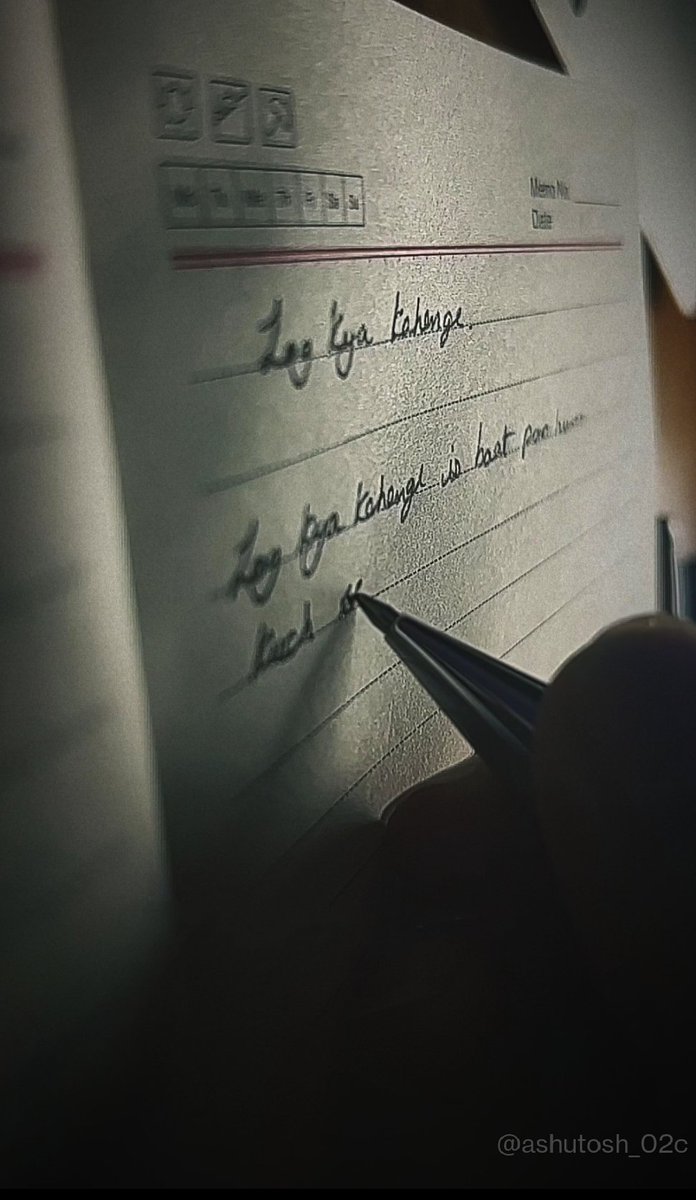 Mo Tu We Th Fr Sa Su
Memo No.
Date
Log kya kehenge.
Log kya kehenge is baat par hum
kuch
@ashutosh_02c